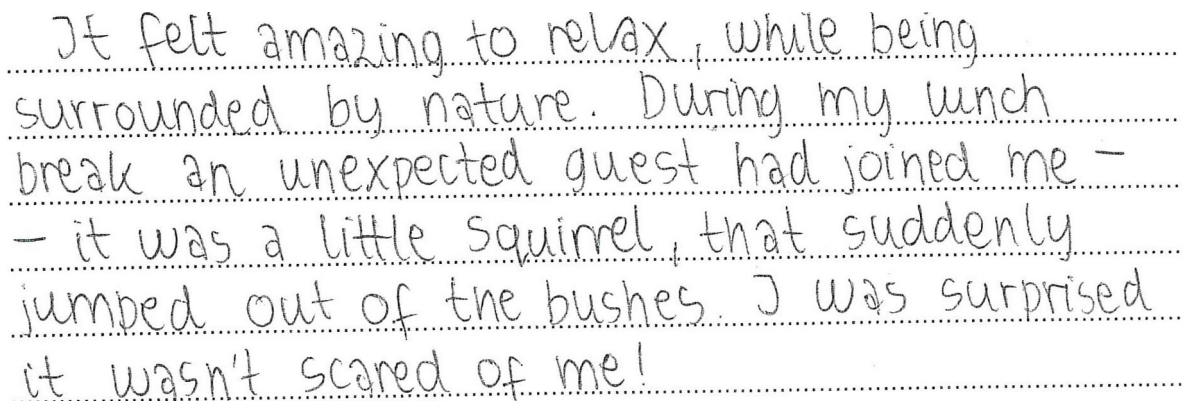 It felt amazing to relax, while being
surrounded by nature. During my lunch
break an unexpected guest had joined me -
- it was a little squirrel, that suddenly
jumped out of the bushes. I was surprised
it wasn't scared of me!